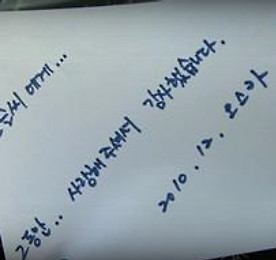 에게...
그동안.. 사랑해 주셔서
감사했습니다.
2010. 12. 오스카